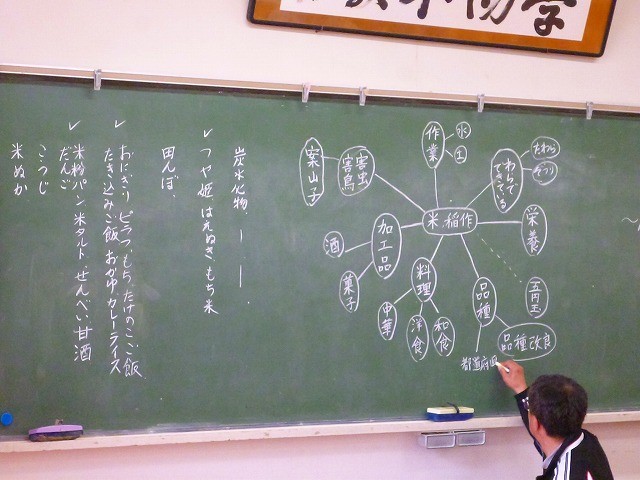 学
炭水化物、ー ー 、
✓ つや姫 はえぬき もち米
田んぼ、
✓ おにぎり ピラフ もち たけのこご飯
たき込みご飯 おかゆ カレーライス
✓ 米粉パン 米タルト せんべい 甘酒
だんご
こうじ
米ぬか
米、稲作
作業
水
土
わらでできている
たわら
ぞうり
栄養
五円玉
品種
品種改良
都道府県
料理
和食
洋食
中華
加工品
酒
菓子
害虫
害鳥
案山子